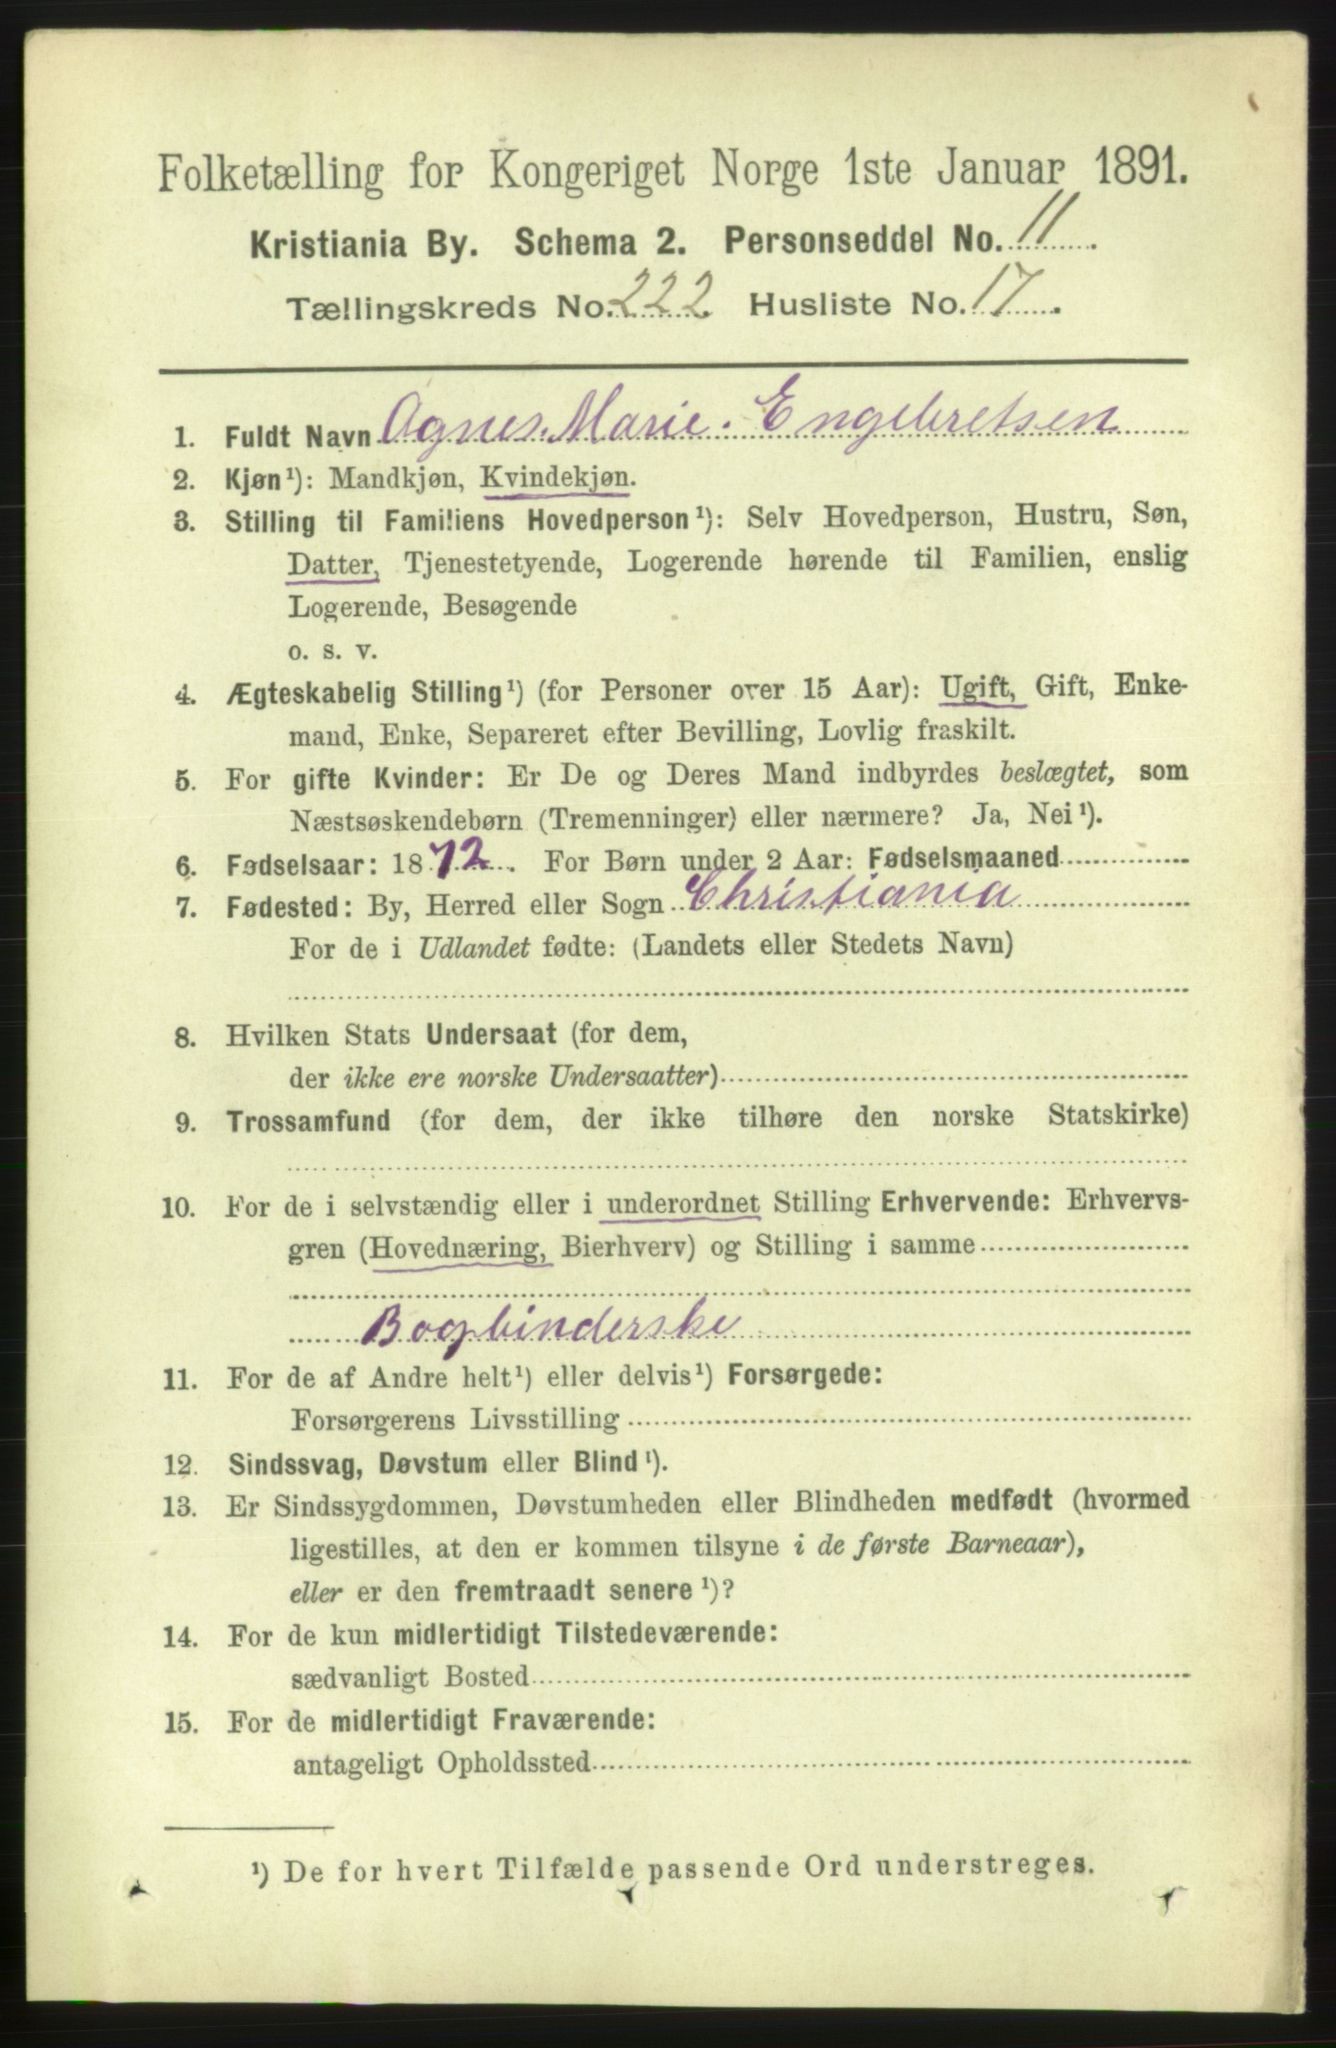 Folketælling for Kongeriget Norge 1ste Januar 1891.
Kristiania By. Schema 2. Personseddel No. 11.
Tællingskreds No. 222. Husliste No. 17.
1. Fuldt Navn Agnes Marie Engebretsen
2. Kjøn¹): Mandkjøn, Kvindekjøn.
3. Stilling til Familiens Hovedperson¹): Selv Hovedperson, Hustru, Søn,
Datter, Tjenestetyende, Logerende hørende til Familien, enslig
Logerende, Besøgende
o. s. v.
4. Ægteskabelig Stilling¹) (for Personer over 15 Aar): Ugift, Gift, Enke-
mand, Enke, Separeret efter Bevilling, Lovlig fraskilt.
5. For gifte Kvinder: Er De og Deres Mand indbyrdes beslægtet, som
Næstsøskendebørn (Tremenninger) eller nærmere? Ja, Nei¹).
6. Fødselsaar: 1872. For Børn under 2 Aar: Fødselsmaaned
7. Fødested: By, Herred eller Sogn Christiania
For de i Udlandet fødte: (Landets eller Stedets Navn)
8. Hvilken Stats Undersaat (for dem,
der ikke ere norske Undersaatter)
9. Trossamfund (for dem, der ikke tilhøre den norske Statskirke)
10. For de i selvstændig eller i underordnet Stilling Erhvervende: Erhvervs-
gren (Hovednæring, Bierhverv) og Stilling i samme
Bogbinderske
11. For de af Andre helt¹) eller delvis¹) Forsørgede:
Forsørgerens Livsstilling
12. Sindssvag, Døvstum eller Blind¹).
13. Er Sindssygdommen, Døvstumheden eller Blindheden medfødt (hvormed
ligestilles, at den er kommen tilsyne i de første Barneaar),
eller er den fremtraadt senere¹)?
14. For de kun midlertidigt Tilstedeværende:
sædvanligt Bosted
15. For de midlertidigt Fraværende:
antageligt Opholdssted
¹) De for hvert Tilfælde passende Ord understreges.